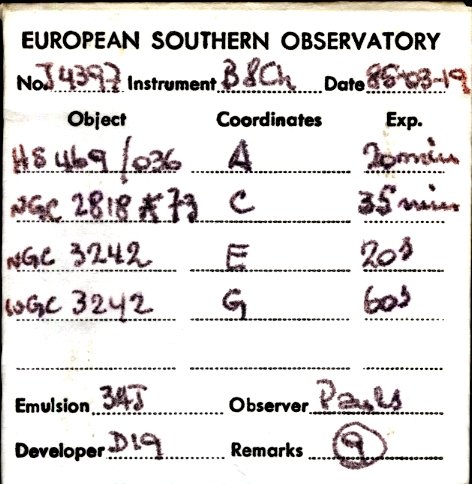 EUROPEAN SOUTHERN OBSERVATORY
No. J4397 Instrument B&Ch Date 85-03-19
Object Coordinates Exp.
H8469/036 A 20min
NGC 2818 *73 C 35min
NGC 3242 E 20s
NGC 3242 G 60s
Emulsion 34J Observer Pauls
Developer D19 Remarks 9